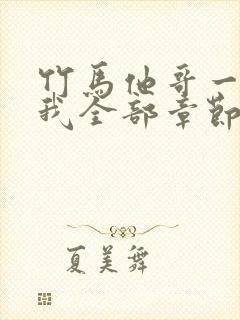 竹馬他哥一
我全部章節
夏美舞